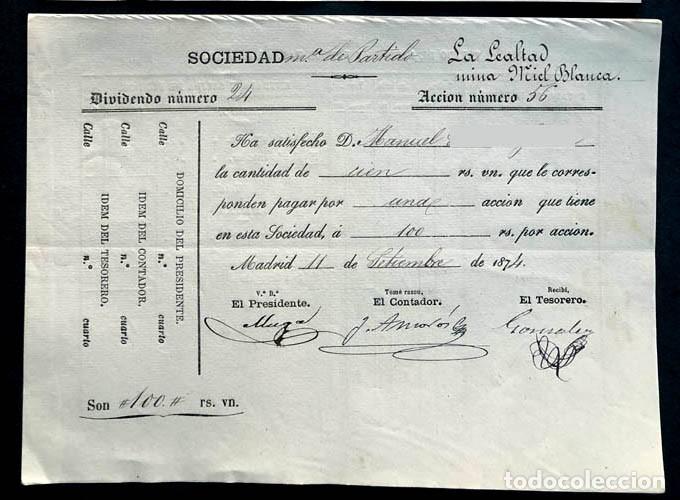 SOCIEDAD m.ª de Partido La Lealtad
mina Miel Blanca.
Dividendo número 24 Accion número 56
Ha satisfecho D. Manuel
la cantidad de cien rs. vn. que le corres-
ponden pagar por una accion que tiene
en esta Sociedad, á 100 rs. por accion.
Madrid 11 de Setiembre de 1874.
V.º B.º
El Presidente.
Tomé razon,
El Contador.
Recibí,
El Tesorero.
J. Amorós
Gonzalez
DOMICILIO DEL PRESIDENTE.
Calle n.º cuarto
IDEM DEL CONTADOR.
Calle n.º cuarto
IDEM DEL TESORERO.
Calle n.º cuarto
Son #100.# rs. vn.
todocoleccion